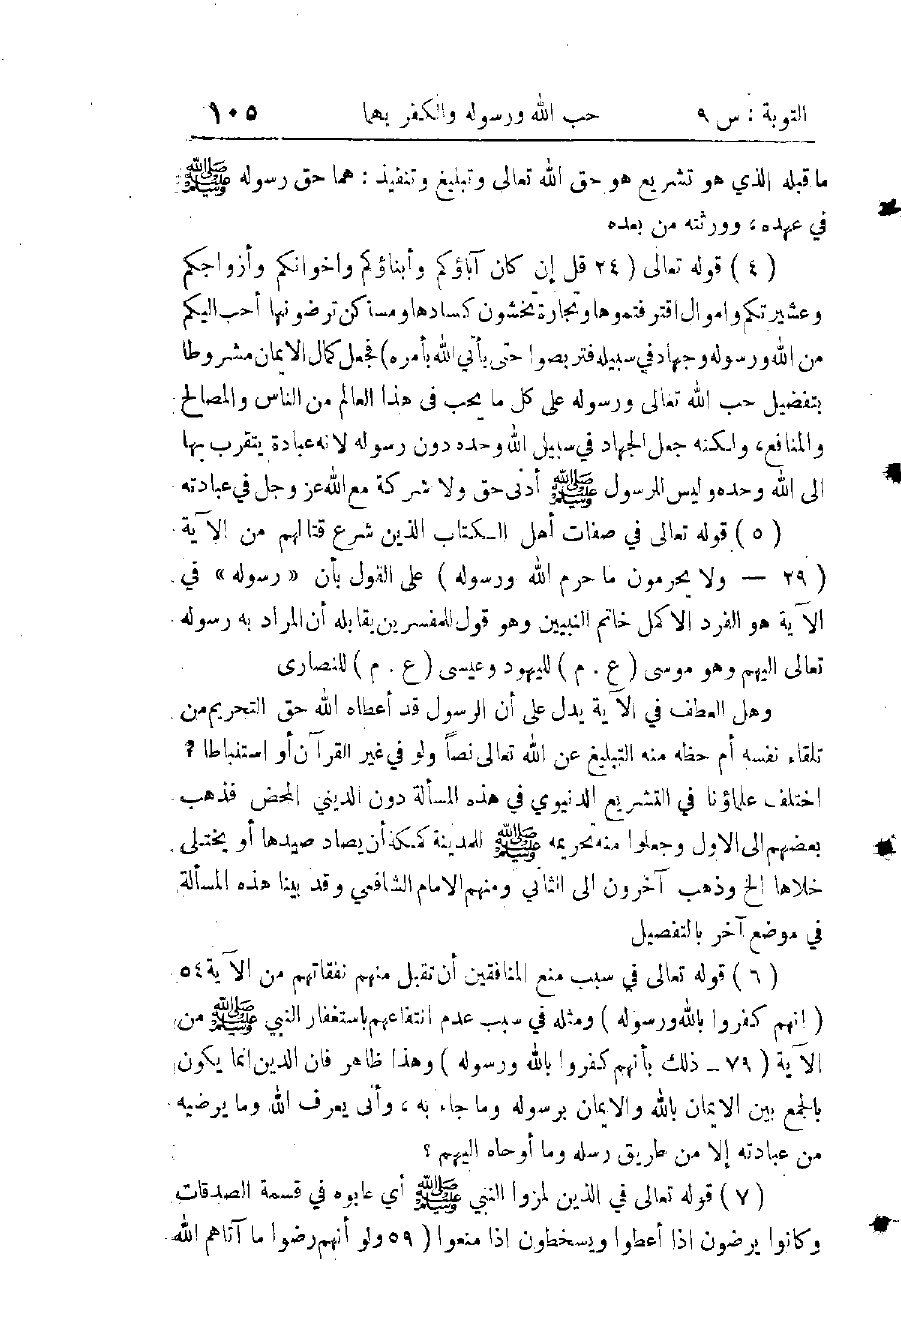 التوبة : س ٩ حب الله ورسوله والكفر بهما ١٠٥
ما قبله الذي هو تشريع هو حق الله تعالى وتبليغ وتنفيذ : هما حق رسوله ﷺ
في عهده ، وورثته من بعده
( ٤ ) قوله تعالى ( ٢٤ قل إن كان آباؤكم وأبناؤكم واخوانكم وأزواجكم
وعشيرتكم واموال اقترفتموها وتجارة تخشون كسادها ومساكن ترضونها أحب اليكم
من الله ورسوله وجهاد في سبيله فتربصوا حتى يأتي الله بأمره) فجعل كمال الايمان مشروطا
بتفضيل حب الله تعالى ورسوله على كل ما يحب في هذا العالم من الناس والمصالح
والمنافع، ولكنه جعل الجهاد في سبيل الله وحده دون رسوله لانه عبادة يتقرب بها
الى الله وحده وليس للرسول ﷺ أدنى حق ولا شركة مع الله عز وجل في عبادته
( ٥ ) قوله تعالى في صفات أهل الكتاب الذين شرع قتالهم من الآية
( ٢٩ — ولا يحرمون ما حرم الله ورسوله ) على القول بأن « رسوله » في
الآية هو الفرد الاكمل خاتم النبيين وهو قول للمفسرين يقابله أن المراد به رسوله
تعالى اليهم وهو موسى ( ع . م ) لليهود وعيسى ( ع . م ) للنصارى
وهل العطف في الآية يدل على أن الرسول قد أعطاه الله حق التحريم من
تلقاء نفسه أم حظه منه التبليغ عن الله تعالى نصاً ولو في غير القرآن أو استنباطا ؟
اختلف علماؤنا في التشريع الدنيوي في هذه المسألة دون الديني المحض فذهب
بعضهم الى الاول وجعلوا منه تحريمه ﷺ للمدينة كمكة أن يصاد صيدها أو يختلى
خلاها الخ وذهب آخرون الى الثاني ومنهم الامام الشافعي وقد بينا هذه المسألة
في موضع آخر بالتفصيل
( ٦ ) قوله تعالى في سبب منع المنافقين أن تقبل منهم نفقاتهم من الآية ٥٤
( إنهم كفروا بالله ورسوله ) ومثله في سبب عدم انتفاعهم باستغفار النبي ﷺ من
الآية ( ٧٩ ـ ذلك بأنهم كفروا بالله ورسوله ) وهذا ظاهر فان الدين انما يكون
بالجمع بين الايمان بالله والايمان برسوله وما جاء به ، وأنى يعرف الله وما يرضيه
من عبادته إلا من طريق رسله وما أوحاه اليهم ؟
( ٧ ) قوله تعالى في الذين لمزوا النبي ﷺ أي عابوه في قسمة الصدقات
وكانوا يرضون اذا أعطوا ويسخطون اذا منعوا ( ٥٩ ولو أنهم رضوا ما آتاهم الله